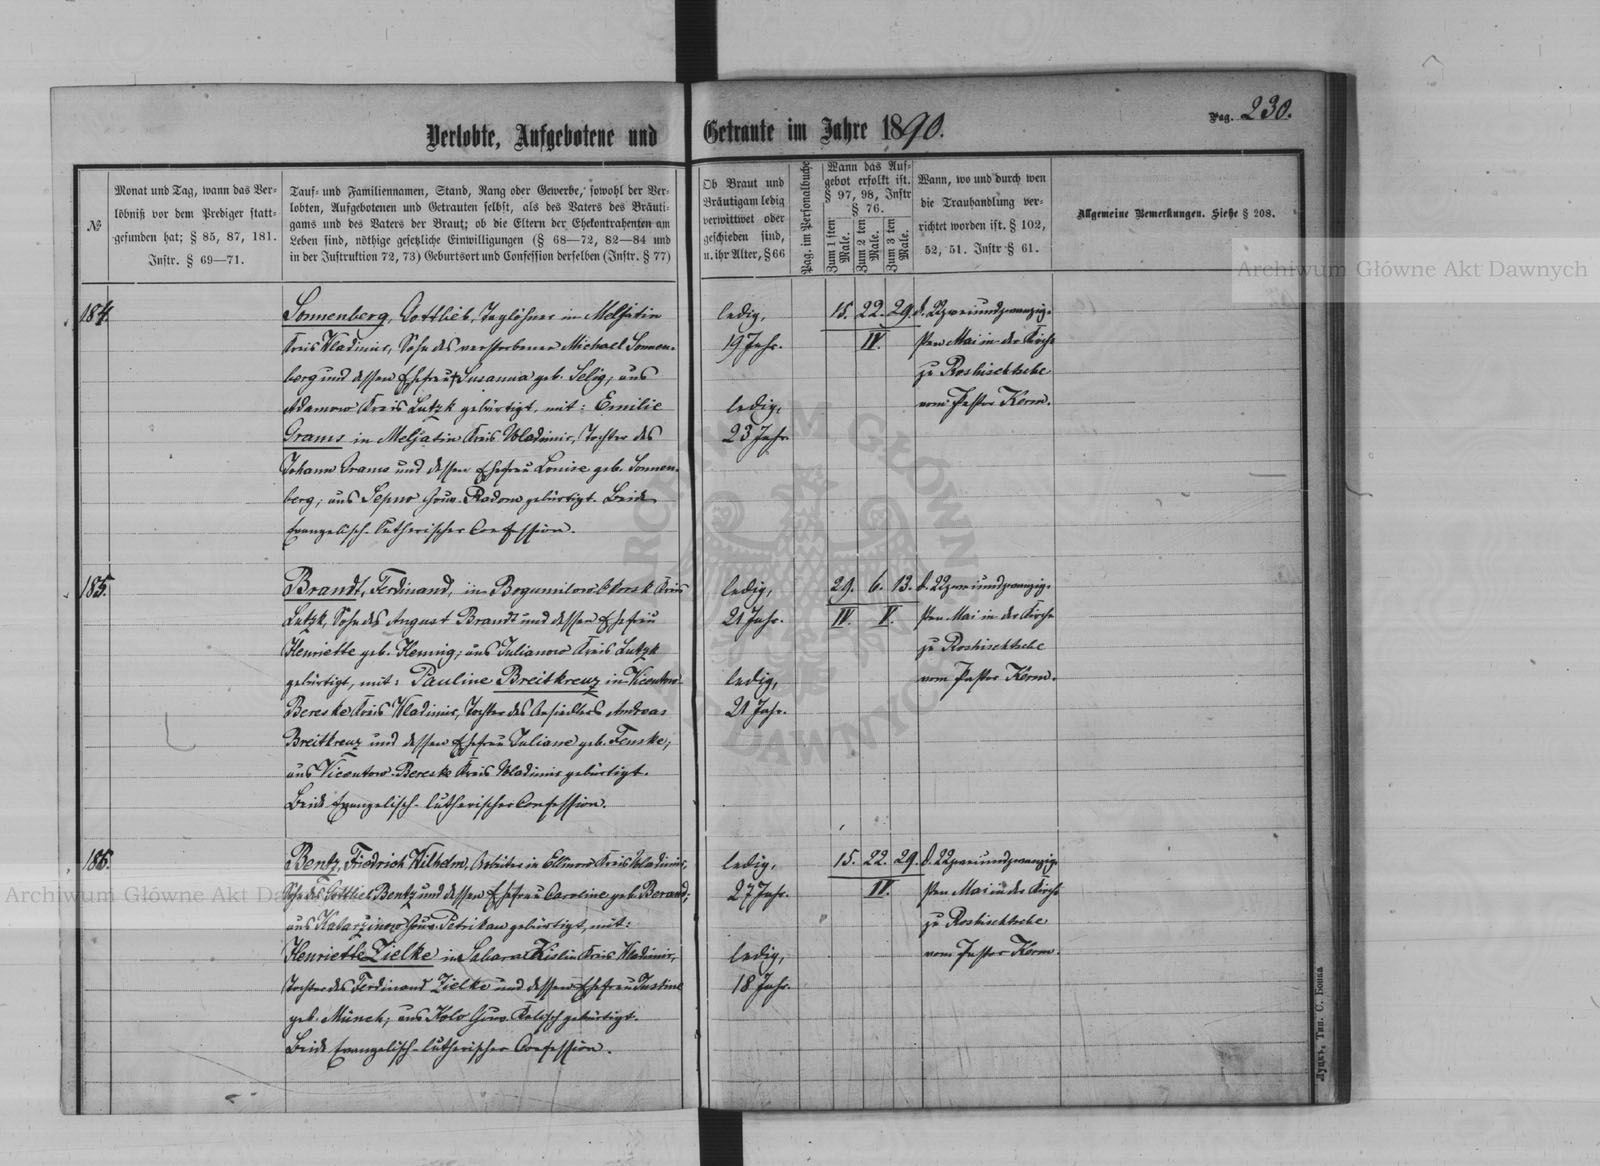 Verlobte, Aufgebotene und Getraute im Jahre 1890.
Pag. 230.
№
Monat und Tag, wann das Ver-
löbniß vor dem Prediger statt-
gefunden hat; § 85, 87, 181.
Instr. § 69—71.
Tauf- und Familiennamen, Stand, Rang oder Gewerbe, sowohl der Ver-
lobten, Aufgebotenen und Getrauten selbst, als des Vaters des Bräuti-
gams und des Vaters der Braut; ob die Eltern der Ehekontrahenten am
Leben sind, nöthige gesetzliche Einwilligungen (§ 68—72, 82—84 und
in der Instruktion 72, 73) Geburtsort und Confession derselben (Instr. § 77)
Ob Braut und
Bräutigam ledig
verwittwet oder
geschieden sind,
u. ihr Alter, § 66
Pag. im Personalbuche
Wann das Auf-
gebot erfolkt ist.
§ 97, 98, Instr
§ 76.
Zum 1 sten Male.
Zum 2 ten Male.
Zum 3 ten Male.
Wann, wo und durch wen
die Trauhandlung ver-
richtet worden ist. § 102,
52, 51. Instr § 61.
Allgemeine Bemerkungen. Siehe § 208.
184.
Sonnenberg, Gottlieb, Taglöhner in Meljatin
Kreis Wladimir, Sohn des verstorbenen Michael Sonnen-
berg und dessen Ehefrau Susanna geb. Selig, aus
Adamow Kreis Lutzk gebürtigt, mit: Emilie
Grams in Meljatin Kreis Wladimir, Tochter des
Johann Grams und dessen Ehefrau Louise geb. Sonnen-
berg, aus Sepno Gouv. Radom gebürtigt. Beide
Evangelisch-lutherischer Confession.
ledig,
19 Jahr.
ledig,
23 Jahr.
15. 22. 29.
IV.
d. 22 zweiundzwanzig-
sten Mai in der Kirche
zu Roshischtsche
vom Pastor Kerm.
185.
Brandt, Ferdinand, in Bogumilow Kreis
Lutzk, Sohn des August Brandt und dessen Ehefrau
Henriette geb. Hennig, aus Julianow Kreis Lutzk
gebürtigt, mit: Pauline Breitkreuz in Vicentow-
Bereske Kreis Wladimir, Tochter des Ansiedlers Andreas
Breitkreuz und dessen Ehefrau Juliane geb. Fenske,
aus Vicentow-Bereske Kreis Wladimir gebürtigt.
Beide Evangelisch-lutherischer Confession.
ledig,
21 Jahr.
ledig,
21 Jahr.
29. 6. 13.
IV. V.
d. 22 zweiundzwanzig-
sten Mai in der Kirche
zu Roshischtsche
vom Pastor Kerm.
186.
Bentz, Friedrich Wilhelm, Arbeiter in Kreis Wladimir,
Sohn des Gottlieb Bentz und dessen Ehefrau Caroline geb. Berand,
aus Katarzinow Gouv. Petrikau gebürtigt, mit:
Henriette Zielke in Kreis Wladimir,
Tochter des Ferdinand Zielke und dessen Ehefrau Justine
geb. Münch, aus Kolo Gouv. Kalisch gebürtigt.
Beide Evangelisch-lutherischer Confession.
ledig,
27 Jahr.
ledig,
18 Jahr.
15. 22. 29.
IV.
d. 22 zweiundzwanzig-
sten Mai in der Kirche
zu Roshischtsche
vom Pastor Kerm.
Луцкъ, Тип. С. Бонка
Archiwum Główne Akt Dawnych
Archiwum Główne Akt Dawnych
ARCHIWUM GŁÓWNE AKT DAWNYCH